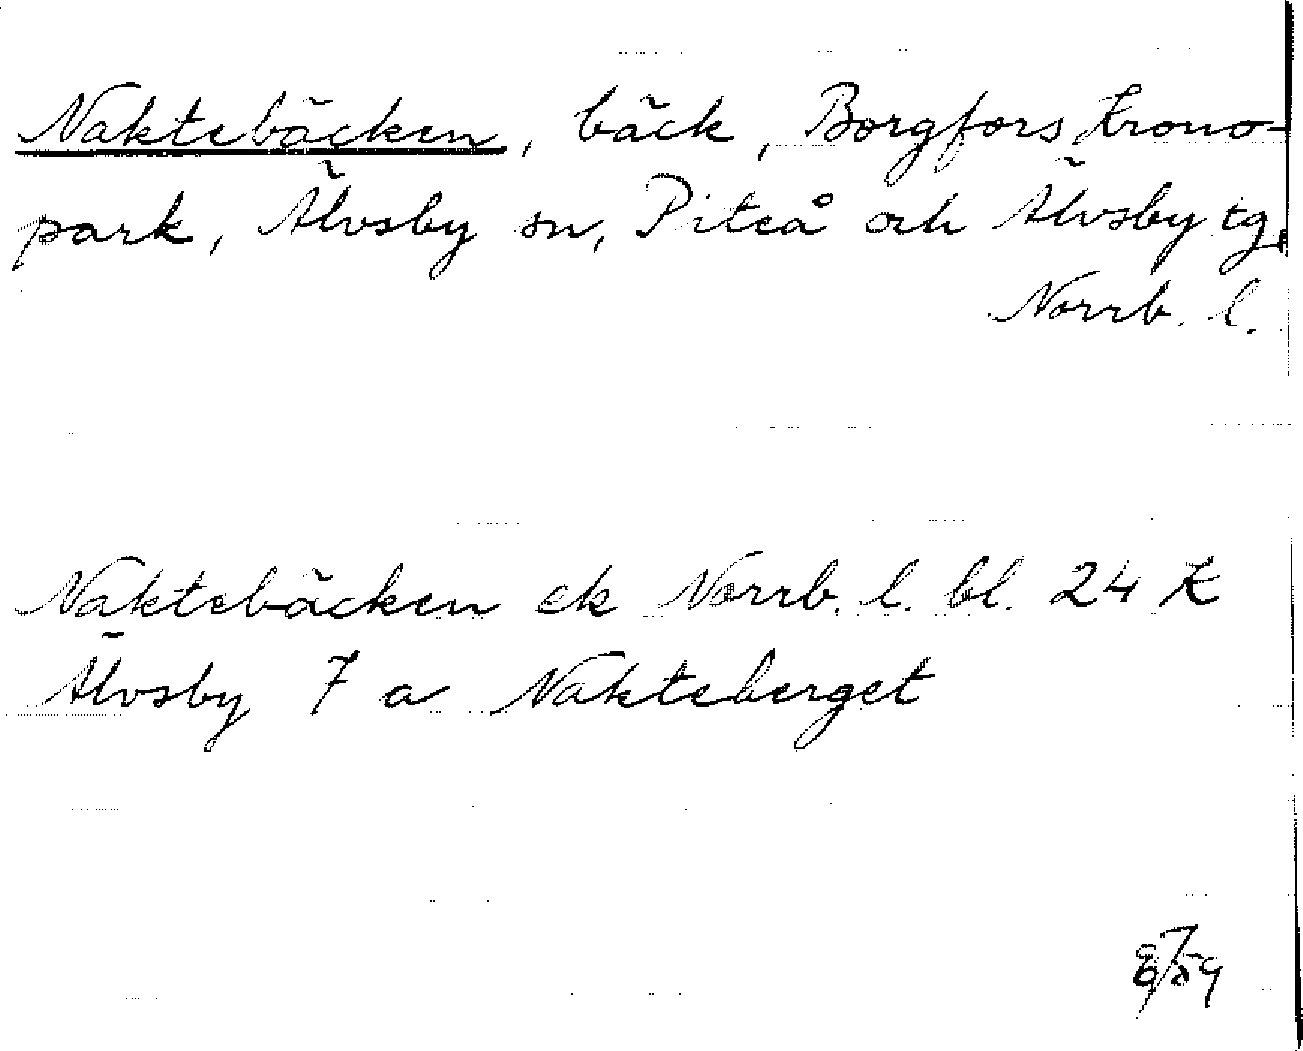 Naktebäcken, bäck, Borgfors Krono-
park, Älvsby sn, Piteå och Älvsby tg,
Norrb. l.
Naktebäcken ek Norrb. l. bl. 24 K
Älvsby 7 a Nakteberget